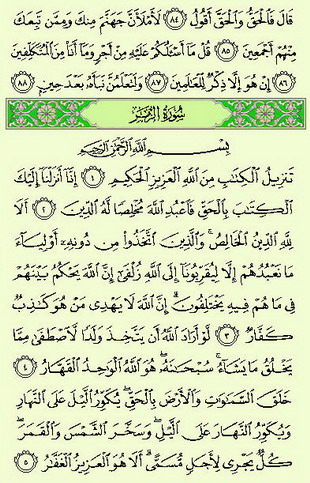 قَالَ فَالْحَقُّ وَالْحَقَّ أَقُولُ ﴿٨٤﴾ لَأَمْلَأَنَّ جَهَنَّمَ مِنكَ وَمِمَّن تَبِعَكَ
مِنْهُمْ أَجْمَعِينَ ﴿٨٥﴾ قُلْ مَا أَسْـَٔلُكُمْ عَلَيْهِ مِنْ أَجْرٍ وَمَا أَنَا۠ مِنَ الْمُتَكَلِّفِينَ
﴿٨٦﴾ إِنْ هُوَ إِلَّا ذِكْرٌ لِّلْعَالَمِينَ ﴿٨٧﴾ وَلَتَعْلَمُنَّ نَبَأَهُ بَعْدَ حِينٍ ﴿٨٨﴾
سُورَةُ الزُّمَرِ
بِسْمِ اللَّهِ الرَّحْمَٰنِ الرَّحِيمِ
تَنزِيلُ الْكِتَابِ مِنَ اللَّهِ الْعَزِيزِ الْحَكِيمِ ﴿١﴾ إِنَّا أَنزَلْنَا إِلَيْكَ
الْكِتَابَ بِالْحَقِّ فَاعْبُدِ اللَّهَ مُخْلِصًا لَّهُ الدِّينَ ﴿٢﴾ أَلَا
لِلَّهِ الدِّينُ الْخَالِصُ ۚ وَالَّذِينَ اتَّخَذُوا مِن دُونِهِ أَوْلِيَاءَ
مَا نَعْبُدُهُمْ إِلَّا لِيُقَرِّبُونَا إِلَى اللَّهِ زُلْفَىٰ إِنَّ اللَّهَ يَحْكُمُ بَيْنَهُمْ
فِي مَا هُمْ فِيهِ يَخْتَلِفُونَ ۗ إِنَّ اللَّهَ لَا يَهْدِي مَنْ هُوَ كَاذِبٌ
كَفَّارٌ ﴿٣﴾ لَّوْ أَرَادَ اللَّهُ أَن يَتَّخِذَ وَلَدًا لَّاصْطَفَىٰ مِمَّا
يَخْلُقُ مَا يَشَاءُ ۚ سُبْحَانَهُ ۖ هُوَ اللَّهُ الْوَاحِدُ الْقَهَّارُ ﴿٤﴾
خَلَقَ السَّمَاوَاتِ وَالْأَرْضَ بِالْحَقِّ ۖ يُكَوِّرُ اللَّيْلَ عَلَى النَّهَارِ
وَيُكَوِّرُ النَّهَارَ عَلَى اللَّيْلِ ۖ وَسَخَّرَ الشَّمْسَ وَالْقَمَرَ ۖ
كُلٌّ يَجْرِي لِأَجَلٍ مُّسَمًّى ۗ أَلَا هُوَ الْعَزِيزُ الْغَفَّارُ ﴿٥﴾